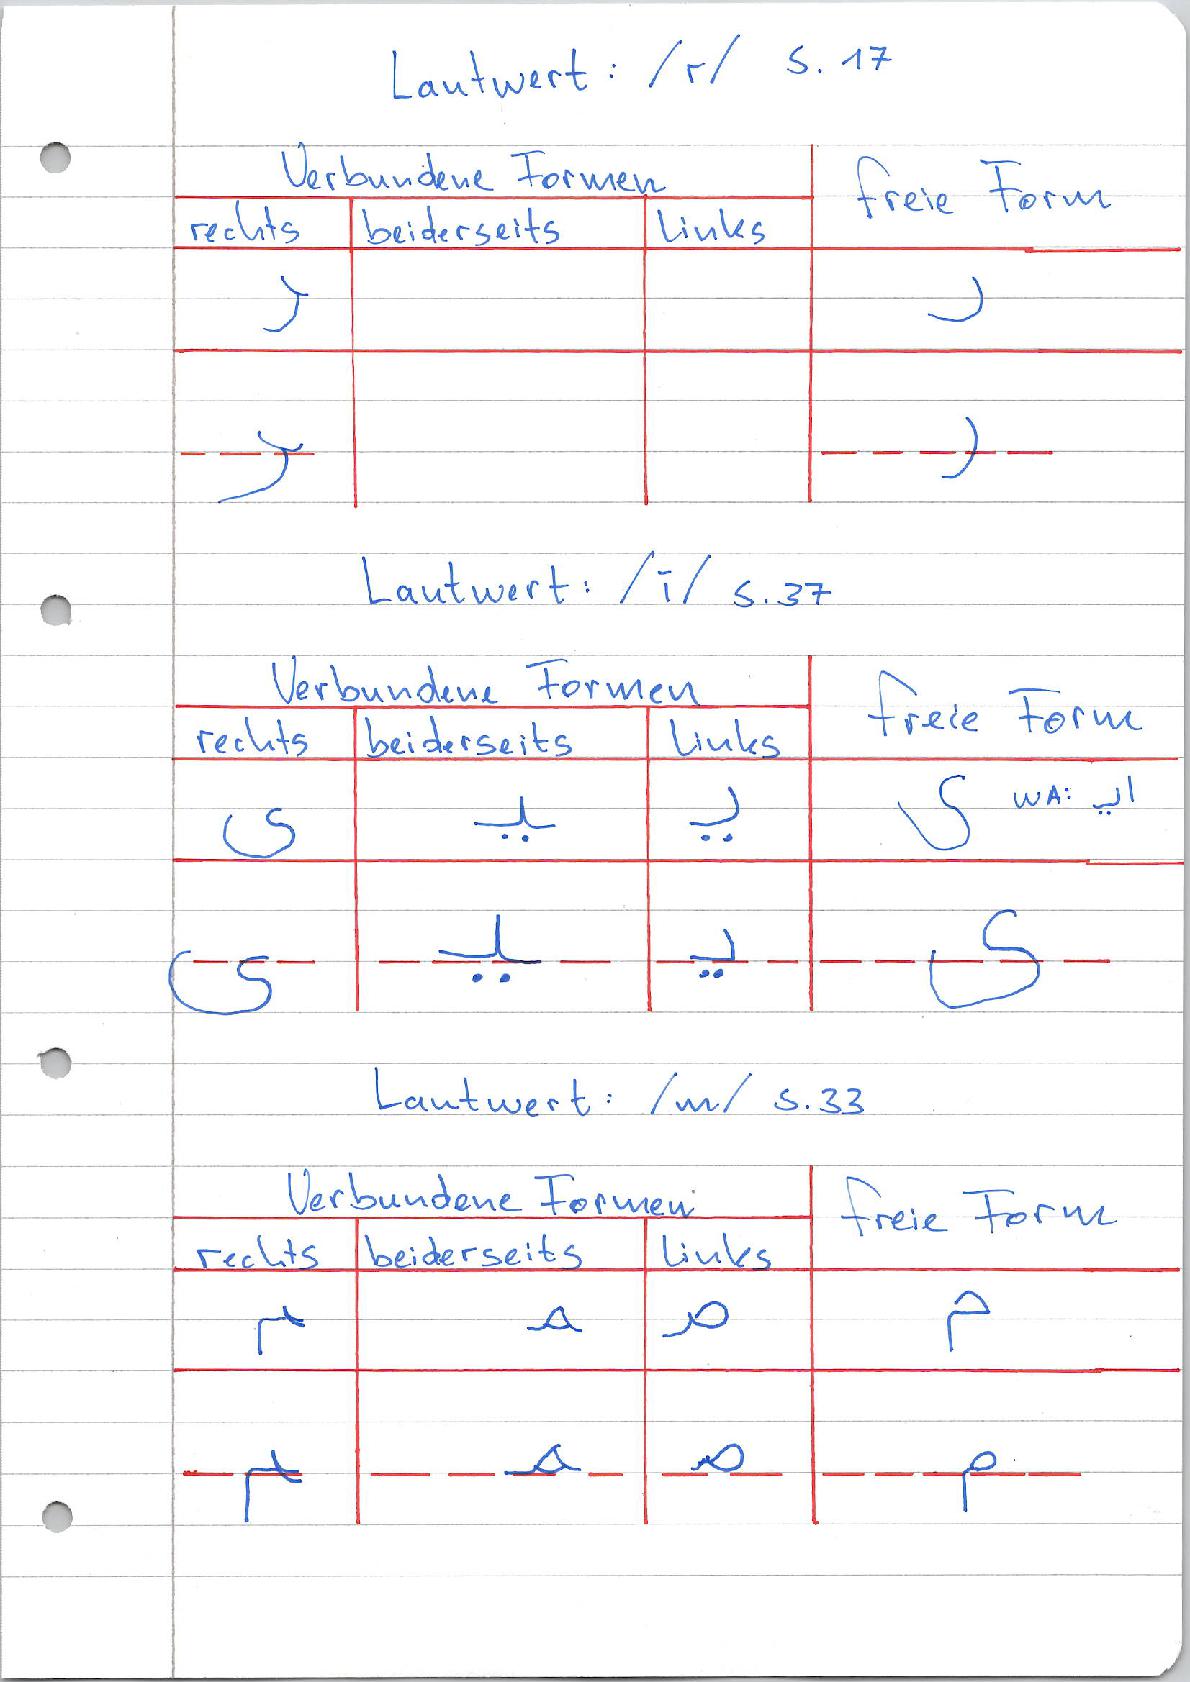 Lautwert: /r/ S. 17
Verbundene Formen freie Form
rechts beiderseits links
ر ر
ر ر
Lautwert: /ī/ S. 37
Verbundene Formen freie Form
rechts beiderseits links
ی یـ یـ ی WA: ایـ
ی یـ یـ ی
Lautwert: /m/ S. 33
Verbundene Formen freie Form
rechts beiderseits links
ـم ـمـ مـ م
ـم ـمـ مـ م